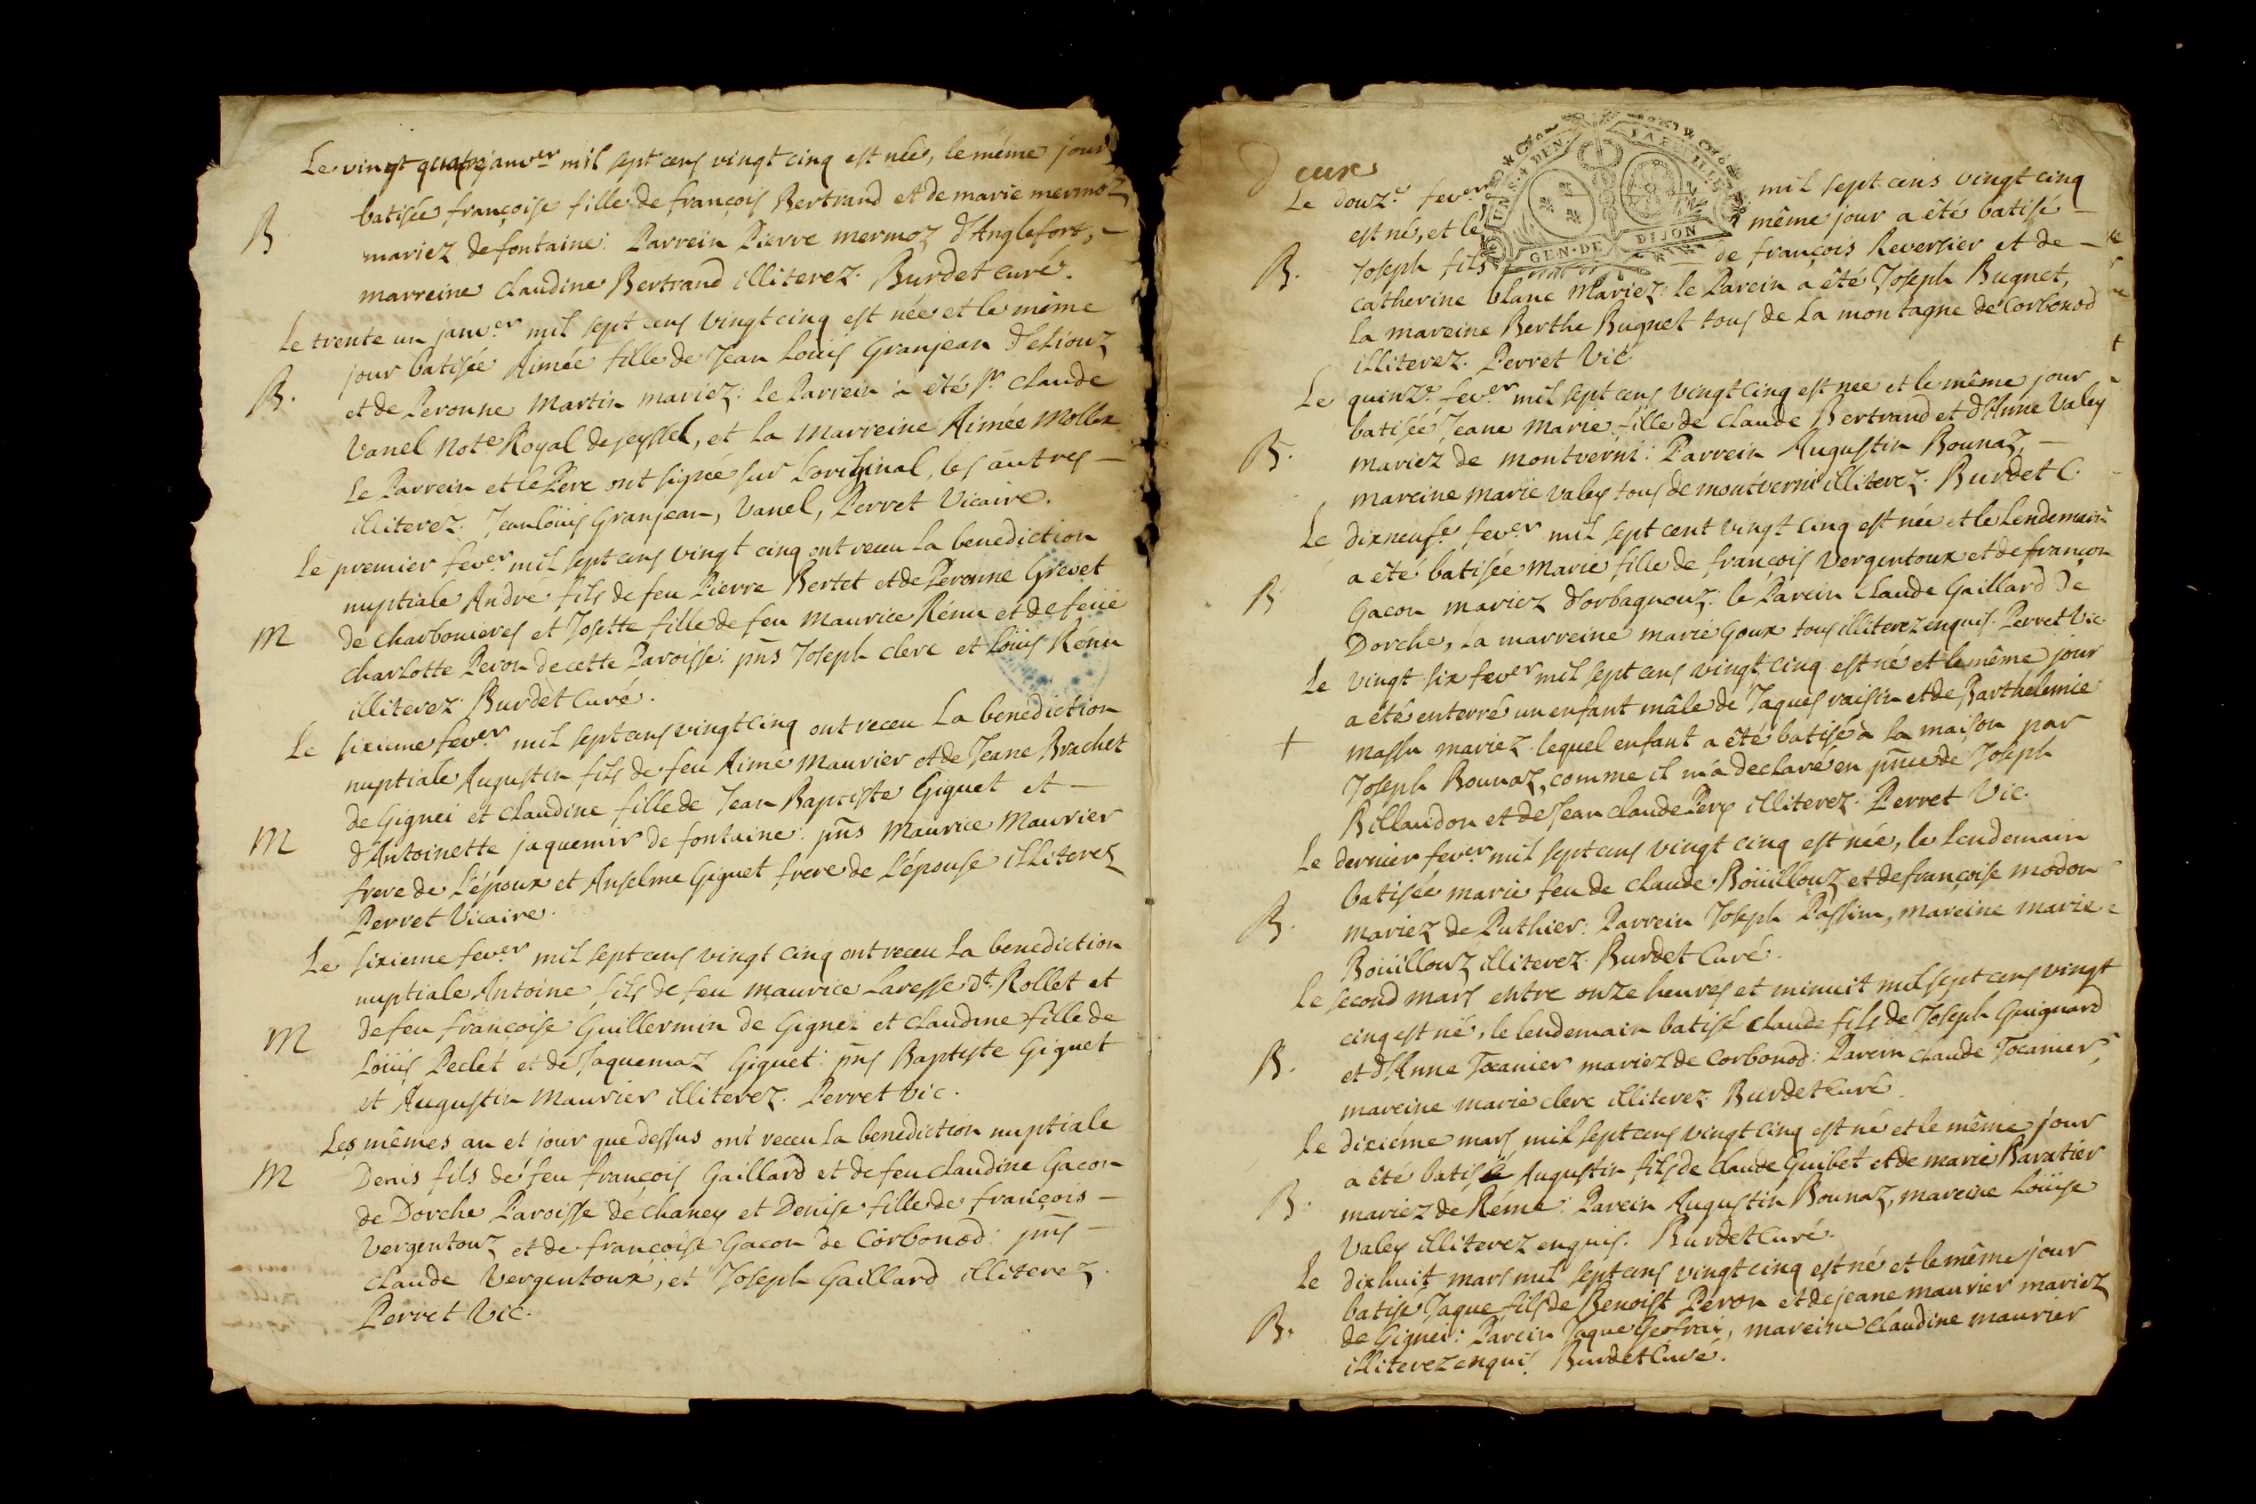 Le vingt quatre janv.er mil sept cens vingt cinq est née, le même jour
B batisée françoise fille de françois Bertrand et de marie mermoz
mariez de fontaine: Parrein Pierre mermoz d'Anglefort, –
marreine Claudine Bertrand illiterez. Burdet Curé.
Le trente un janv.er mil sept cens vingt cinq est née et le même
jour batisée Aimée fille de Jean Loüis Granjean d'Eliouz
B. et de Peronne Martin mariez: le Parrein a été Sr. Claude
Vanel Not.e Royal de seyssel, et la Marreine Aimée Mollex
le Parrein et le Pere ont signé sur l'original, les autres –
illiterez. Jean loüis Granjean, Vanel, Perret Vicaire.
Le premier fev.er mil sept cens vingt cinq ont receu la benediction
nuptiale André fils de feu Pierre Bertet et de Peronne Grevet
M de Charbonieres et Josette fille de feu Maurice Rému et de feüe
Charlotte Peron de cette Paroisse: pñs Joseph clerc et Loüis Rému
illiterez Burdet Curé.
Le sixieme fev.er mil sept cens vingt cinq ont receu la benediction
nuptiale Augustin fils de feu Aimé Maurier et de Jeane Brachet
de Gignei et Claudine fille de Jean Baptiste Giguet et –
M d'Antoinette jaquemir de fontaine: pñs Maurice Maurier
frere de l'époux et Anselme Giguet frere de l'épouse illiterez
Perret Vicaire.
Le sixieme fev.er mil sept cens vingt cinq ont receu la benediction
nuptiale Antoine fils de feu Maurice Laresse dt. Rollet et
M de feu françoise Guillermin de Gignei et Claudine fille de
Loüis Peclet et de Jaquemaz Giguet: pñs Baptiste Giguet
et Augustin Maurier illiterez. Perret Vic.
Les mêmes an et jour que dessus ont receu la benediction nuptiale
M Denis fils de feu françois Gaillard et de feu Claudine Gacon
de Dorche Paroisse de Chaney et Denise fille de françois –
Vergentouz et de françoise Gacon de Corbonod: pñs –
Claude Vergentoux, et Joseph Gaillard illiterez.
Perret Vic.
Deux
GEN·DE DIJON
Le douz.e fev.er mil sept cens vingt cinq
est né, et le même jour a été batisé –
B. Joseph fils de françois Reversier et de –
Catherine blanc Mariez: le Parein a été Joseph Bugnet,
la mareine Berthe Bugnet tous de la montagne de Corbonod
illiterez. Perret Vic.
Le quinz.e fev.er mil sept cens vingt cinq est née et le même jour
batisée Jeane Marie fille de Claude Bertrand et d'Anne Valey
B. mariez de montverni: Parrein Augustin Bounaz, –
mareine marie valey tous de montverni illiterez. Burdet C.
Le dixneuf.e fev.er mil sept cent vingt cinq est née et le lendemain
a été batisée Marie fille de françois Vergentoux et de françon
B Gacon mariez d'orbagnouz: le Parein Claude Gaillard de
Dorche, la marreine marie Goux tous illiterez enquis. Perret Vic
Le vingt six fev.er mil sept cens vingt cinq est né et le même jour
a été enterré un enfant mâle de Jaques raisin et de Barthelemie
+ massu mariez. lequel enfant a été batisé à la maison par
Joseph Bounaz, comme il m'a declaré en pñce de Joseph
Billaudon et de Jean Claude Pery illiterez. Perret Vic.
Le dernier fev.er mil sept cens vingt cinq est née, le lendemain
batisée marie feu de Claude Boüillouz et de françoise modon
B. mariez de Puthier: Parrein Joseph Passin, mareine marie
Boüillouz illiterez. Burdet Curé.
Le second mars entre onze heures et minuit mil sept cens vingt
cinq est né, le lendemain batisé Claude fils de Joseph Guignard
B. et d'Anne Tocanier mariez de Corbonod: Parein Claude Tocanier,
mareine marie clerc illiterez Burdet Curé.
Le dixiéme mars mil sept cens vingt cinq est né et le même jour
a été batisé Augustin fils de Claude Guibet et de marie Baratier
B. mariez de Rému: Parein Augustin Bounaz, mareine Loüise
Valey illiterez enquis. Burdet Curé.
Le dixhuit mars mil sept cens vingt cinq est né et le même jour
batisé Jaque fils de Benoist Peron et de jeane maurier mariez
B. de Gignei: Parein Jaque Geofrai, mareine Claudine maurier
illiterez enquis. Burdet Curé.